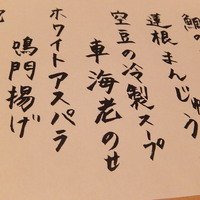 鯛の
蓮根まんじゅう
空豆の冷製スープ
車海老のせ
ホワイトアスパラ
鳴門揚げ